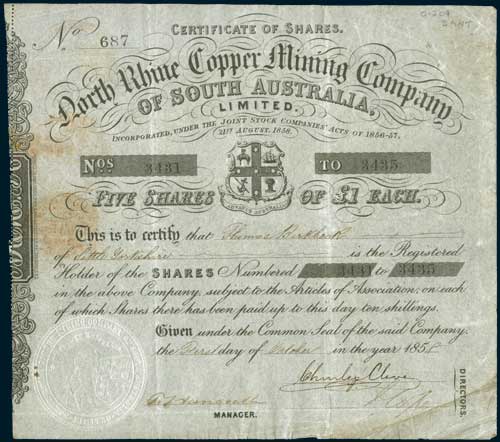 CERTIFICATE OF SHARES.
No 687
North Rhine Copper Mining Company
OF SOUTH AUSTRALIA,
LIMITED.
INCORPORATED, UNDER THE JOINT STOCK COMPANIES' ACTS OF 1856-57.
21ST AUGUST, 1858.
Nos. 3431 TO 3435
FIVE SHARES OF £1 EACH.
This is to certify that Thomas
of Yorkshire is the Registered
Holder of the SHARES Numbered 3431 to 3435
in the above Company, subject to the Articles of Association, on each
of which Shares there has been paid up to this day ten shillings.
Given under the Common Seal of the said Company,
the First day of October in the year 1858
Charley Clive
DIRECTORS.
MANAGER.